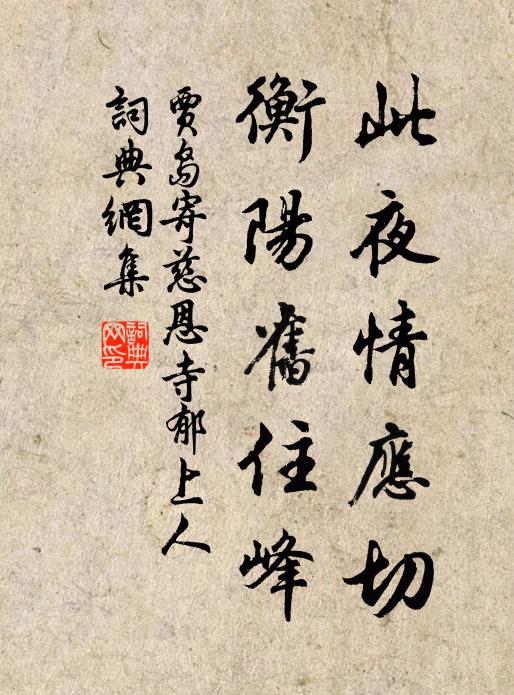 此夜情應切
衡陽舊住峰
賈島寄慈恩寺郁上人
詞典網集
詞典
网印